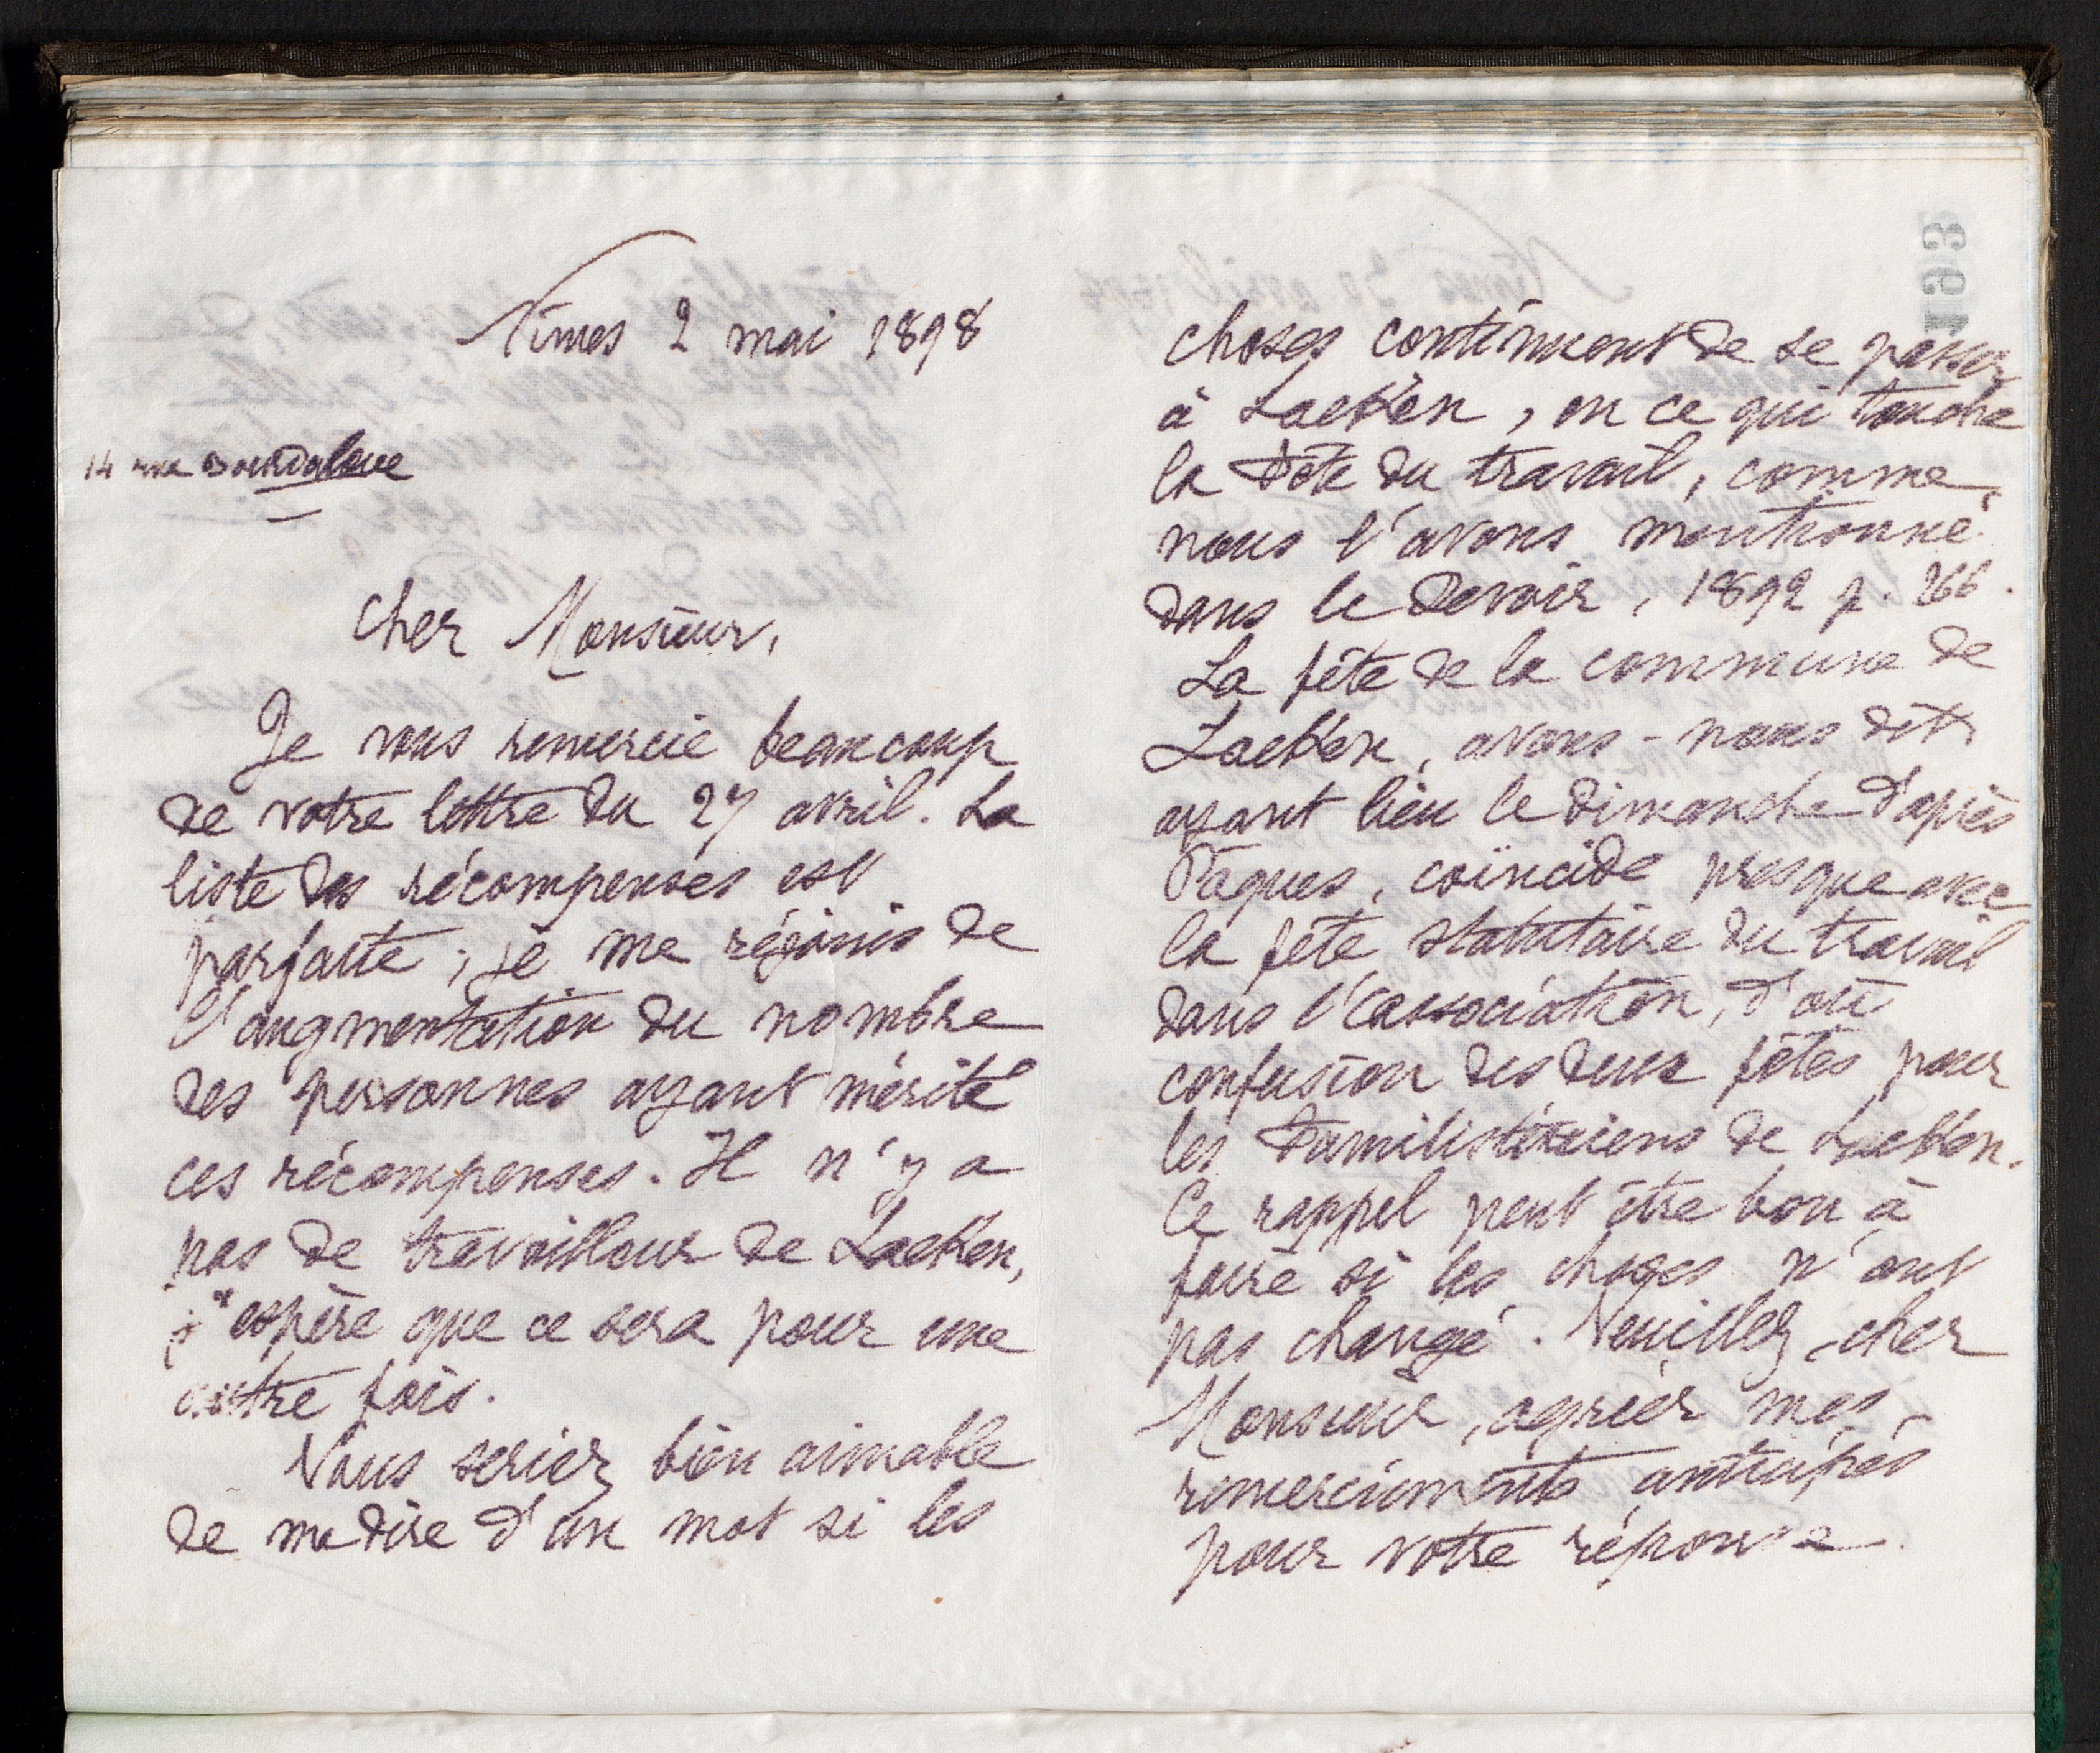 Nîmes 2 mai 1898
14 rue Bourdaloue
Cher Monsieur,
Je vous remercie beaucoup
de votre lettre du 27 avril. La
liste des récompenses est
parfaite ; je me réjouis de
l'augmentation du nombre
des personnes ayant mérité
ces récompenses. Il n'y a
pas de travailleur de Laeken,
j'espère que ce sera pour une
autre fois.
Vous seriez bien aimable
de me dire d'un mot si les
193
choses continuent de se passer
à Laeken, en ce qui touche
la Fête du travail, comme
nous l'avons mentionné
dans le Devoir, 1892 p. 266.
La fête de la commune de
Laeken, avons-nous dit,
ayant lieu le dimanche d'après
Pâques, coïncide presque avec
la fête statutaire du travail
dans l'association, d'où
confusion des deux fêtes pour
les Familistériens de Laeken.
Ce rappel peut être bon à
faire si les choses n'ont
pas changé. Veuillez, cher
Monsieur, agréer mes
remerciements anticipés
pour votre réponse